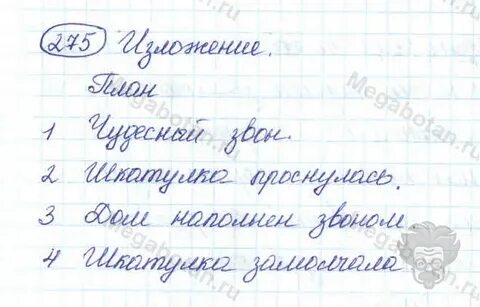 275 Изложение.
План
1 Чудесный звон.
2 Шкатулка проснулась.
3 Дом наполнен звоном
4 Шкатулка замолчала
Megabotan.ru